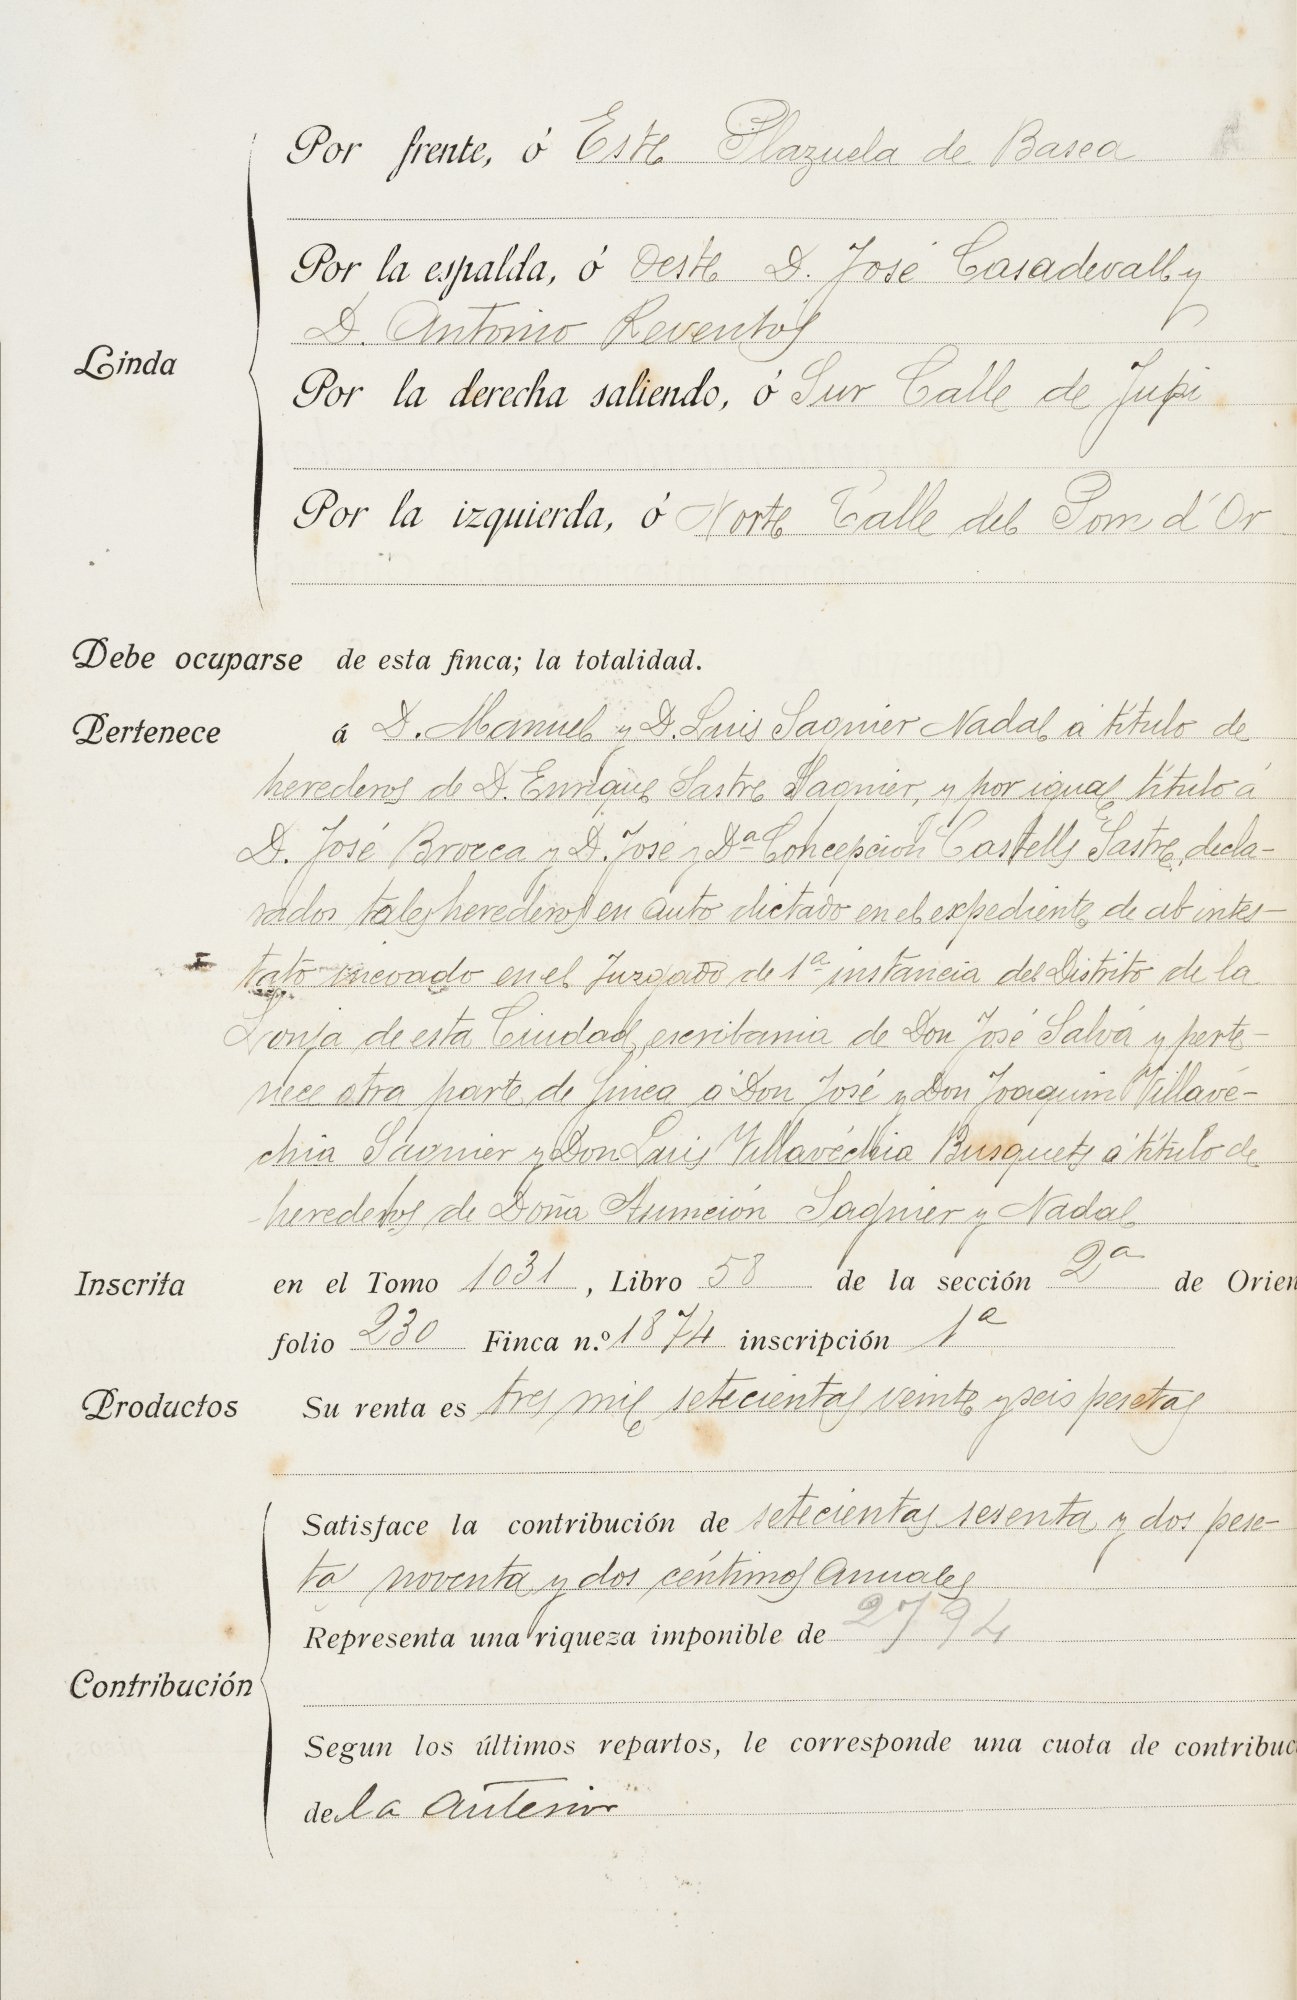 Por frente, ó Este Plazuela de Basea
Por la espalda, ó Oeste D. José Casadevall y
D. Antonio Reventós
Linda
Por la derecha saliendo, ó Sur Calle de Jupi
Por la izquierda, ó Norte Calle del Pom d'Or
Debe ocuparse de esta finca; la totalidad.
Pertenece á D. Manuel y D. Luis Sagnier Nadal á título de
herederos de D. Enrique Sastre Sagnier, y por igual título á
D. José Brocca y D. José y Dª Concepción Castells Sastre, decla-
rados tales herederos en auto dictado en el expediente de ab intes-
tato incoado en el Juzgado de 1ª instancia del Distrito de la
Lonja de esta Ciudad, escribania de Don José Salvá y perte-
nece otra parte de finca á Don José y Don Joaquin Villavé-
chia Sagnier y Don Luis Villavéchia Busquets á título de
herederos de Doña Asunción Sagnier y Nadal
Inscrita en el Tomo 1031, Libro 58 de la sección 2ª de Orien
folio 230 Finca n.º 1874 inscripción 1ª
Productos Su renta es tres mil setecientas veinte y seis pesetas
Satisface la contribución de setecientas sesenta y dos pese-
ta noventa y dos céntimos anuales
Representa una riqueza imponible de 2794
Contribución
Segun los últimos repartos, le corresponde una cuota de contribuc
de la anterior